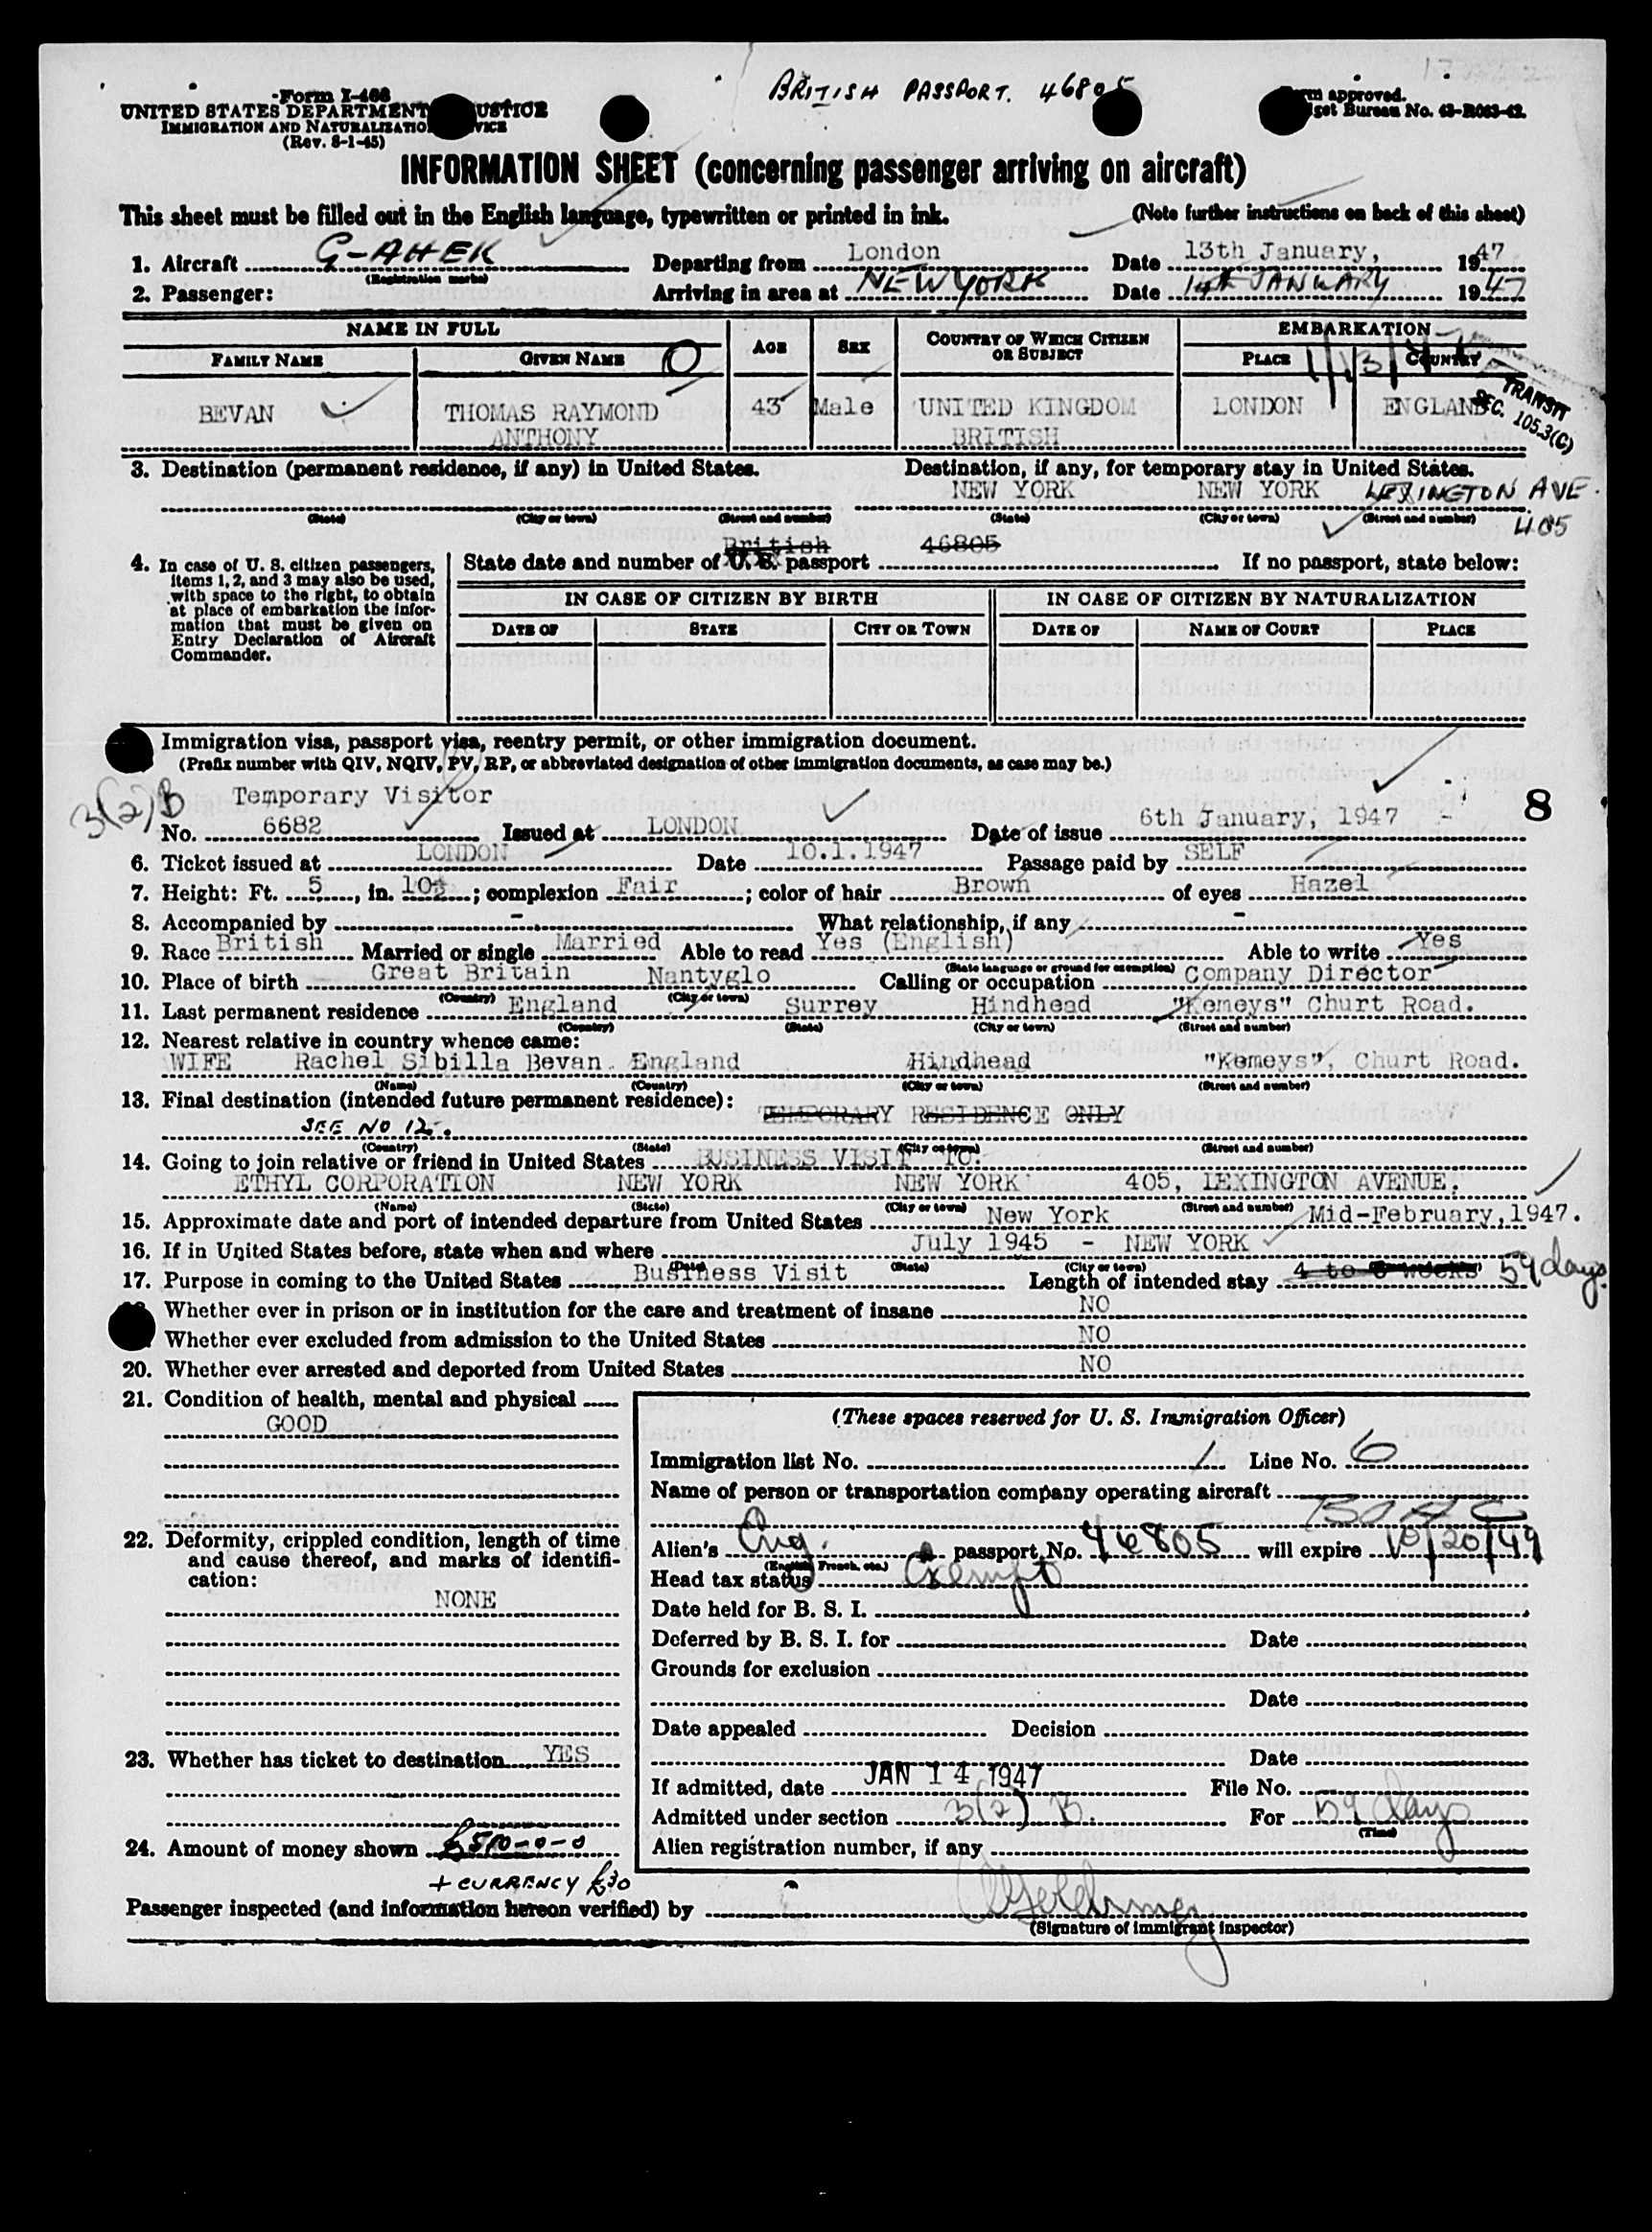 BRITISH PASSPORT. 46805
Form I-466
UNITED STATES DEPARTMENT JUSTICE
IMMIGRATION AND NATURALIZATION SERVICE
(Rev. 8-1-45)
Form approved.
Budget Bureau No. 43-R063-42.
INFORMATION SHEET (concerning passenger arriving on aircraft)
This sheet must be filled out in the English language, typewritten or printed in ink. (Note further instructions on back of this sheet)
1. Aircraft G-AHEK Departing from London Date 13th January, 1947
(Registration marks)
2. Passenger: Arriving in area at NEW YORK Date 14th JANUARY 1947
NAME IN FULL AGE SEX COUNTRY OF WHICH CITIZEN OR SUBJECT EMBARKATION
FAMILY NAME GIVEN NAME PLACE COUNTRY
BEVAN THOMAS RAYMOND ANTHONY 43 Male UNITED KINGDOM BRITISH LONDON ENGLAND
TRANSIT
SEC. 105.3(C)
3. Destination (permanent residence, if any) in United States. Destination, if any, for temporary stay in United States.
NEW YORK NEW YORK LEXINGTON AVE. 405
(State) (City or town) (Street and number) (State) (City or town) (Street and number)
4. In case of U. S. citizen passengers, items 1, 2, and 3 may also be used, with space to the right, to obtain at place of embarkation the information that must be given on Entry Declaration of Aircraft Commander.
British 46805
State date and number of U. S. passport If no passport, state below:
IN CASE OF CITIZEN BY BIRTH IN CASE OF CITIZEN BY NATURALIZATION
DATE OF STATE CITY OR TOWN DATE OF NAME OF COURT PLACE
Immigration visa, passport visa, reentry permit, or other immigration document.
(Prefix number with QIV, NQIV, PV, RP, or abbreviated designation of other immigration documents, as case may be.)
3(2)B Temporary Visitor 8
No. 6682 Issued at LONDON Date of issue 6th January, 1947
6. Ticket issued at LONDON Date 10.1.1947 Passage paid by SELF
7. Height: Ft. 5, in. 10½; complexion Fair; color of hair Brown of eyes Hazel
8. Accompanied by - What relationship, if any -
9. Race British Married or single Married Able to read Yes (English) Able to write Yes
(State language or ground for exemption)
10. Place of birth Great Britain Nantyglo Calling or occupation Company Director
(Country) (City or town)
11. Last permanent residence England Surrey Hindhead "Kemeys" Churt Road.
(Country) (State) (City or town) (Street and number)
12. Nearest relative in country whence came:
WIFE Rachel Sibilla Bevan England Hindhead "Kemeys", Churt Road.
(Name) (Country) (City or town) (Street and number)
13. Final destination (intended future permanent residence): TEMPORARY RESIDENCE ONLY
SEE NO 12.
(Country) (State) (City or town) (Street and number)
14. Going to join relative or friend in United States BUSINESS VISIT TO:
ETHYL CORPORATION NEW YORK NEW YORK 405, LEXINGTON AVENUE.
(Name) (State) (City or town) (Street and number)
15. Approximate date and port of intended departure from United States New York Mid-February, 1947.
16. If in United States before, state when and where July 1945 - NEW YORK
(Date) (State) (City or town)
17. Purpose in coming to the United States Business Visit Length of intended stay 4 to 6 weeks 59 days.
Whether ever in prison or in institution for the care and treatment of insane NO
Whether ever excluded from admission to the United States NO
20. Whether ever arrested and deported from United States NO
21. Condition of health, mental and physical
GOOD
22. Deformity, crippled condition, length of time and cause thereof, and marks of identification:
NONE
23. Whether has ticket to destination YES
24. Amount of money shown £500-0-0
+ CURRENCY £30
(These spaces reserved for U. S. Immigration Officer)
Immigration list No. 1 Line No. 6
Name of person or transportation company operating aircraft
BOAC
Alien's Eng. passport No. 46805 will expire 10/20/49
(English, French, etc.)
Head tax status Exempt
Date held for B. S. I.
Deferred by B. S. I. for Date
Grounds for exclusion
Date
Date appealed Decision
Date
If admitted, date JAN 14 1947 File No.
Admitted under section 3(2) B. For 59 days
(Time)
Alien registration number, if any
Passenger inspected (and information hereon verified) by
(Signature of immigrant inspector)